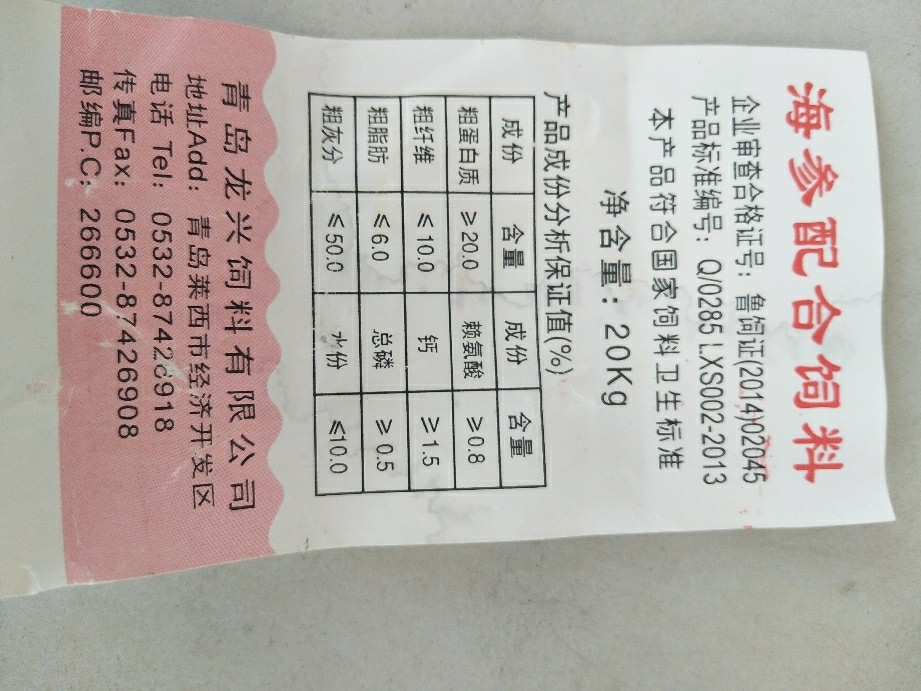 海参配合饲料
企业审查合格证号：鲁饲证(2014)02045
产品标准编号：Q/0285 LXS002-2013
本产品符合国家饲料卫生标准
净含量：20Kg
产品成份分析保证值(%)
成份 含量 成份 含量
粗蛋白质 ≥20.0 赖氨酸 ≥0.8
粗纤维 ≤10.0 钙 ≥1.5
粗脂肪 ≤6.0 总磷 ≥0.5
粗灰分 ≤50.0 水份 ≤10.0
青岛龙兴饲料有限公司
地址Add：青岛莱西市经济开发区
电话 Tel：0532-87428918
传真Fax：0532-87426908
邮编P.C：266600